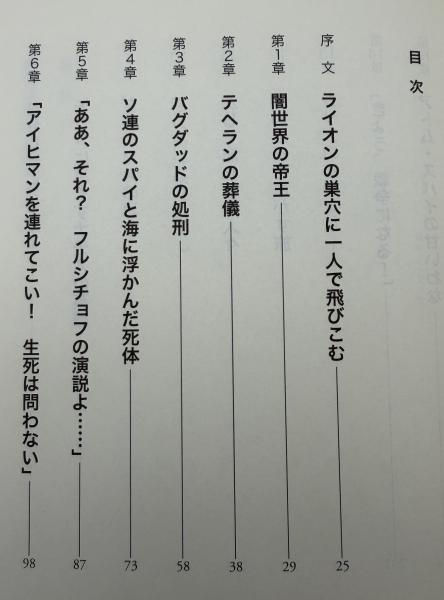 目次
序文 ライオンの巣穴に一人で飛びこむ 25
第1章 闇世界の帝王 29
第2章 テヘランの葬儀 38
第3章 バグダッドの処刑 58
第4章 ソ連のスパイと海に浮かんだ死体 73
第5章 「ああ、それ？　フルシチョフの演説よ……」 87
第6章 「アイヒマンを連れてこい！　生死は問わない」 98